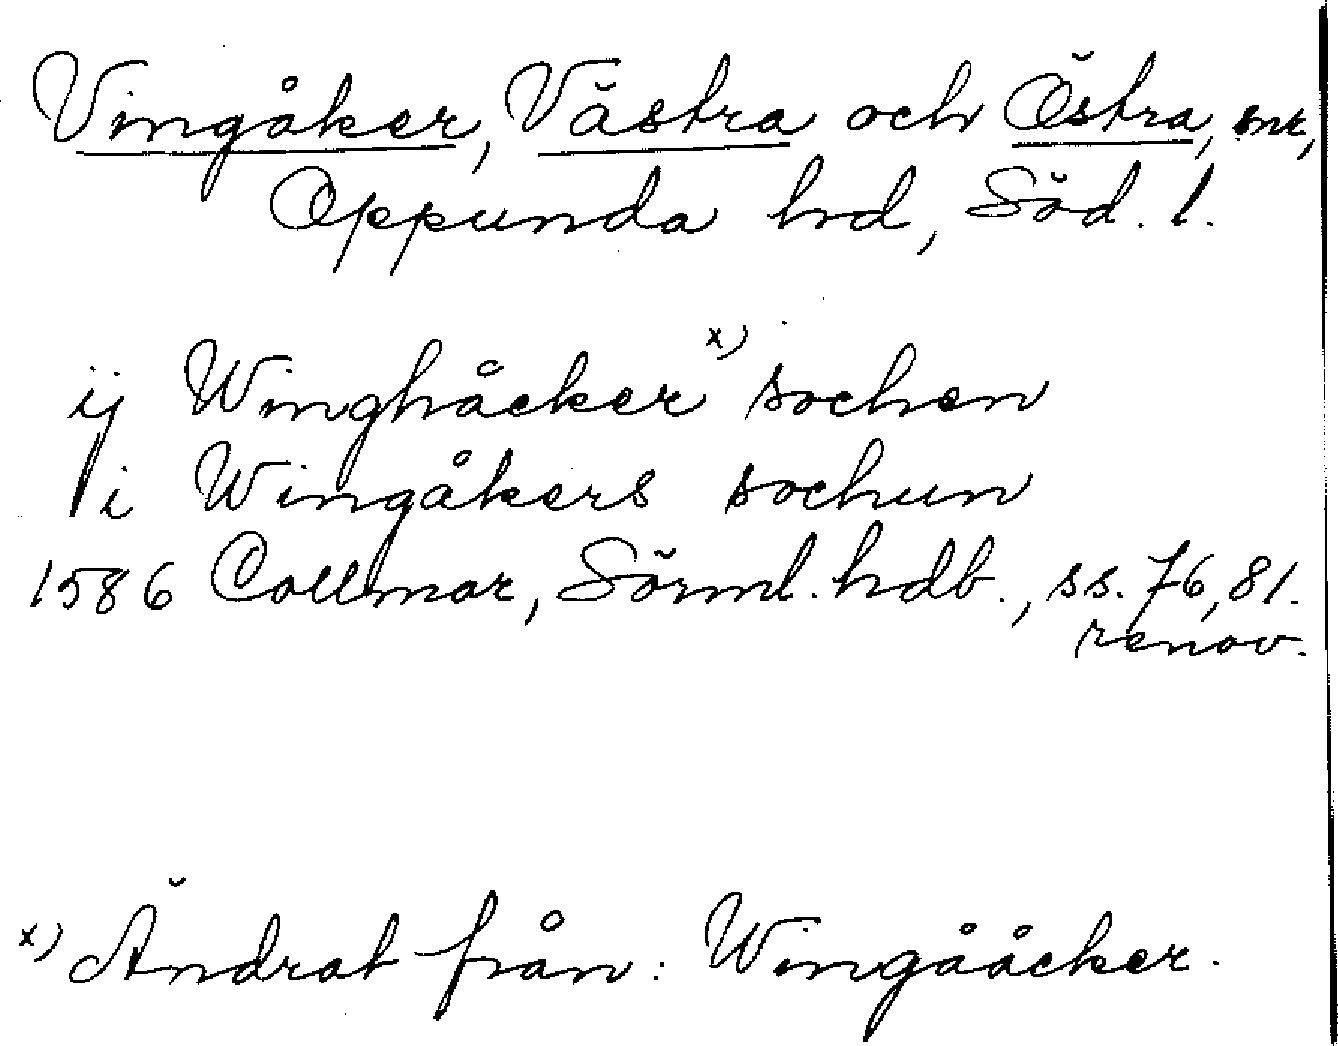 Vingåker, Västra och Östra, snr,
Oppunda hrd, Söd. l.
ij Winghåcker x) sochen
i Wingåkers sochun
1586 Collmar, Sörml. hdb., ss. 76, 81.
renov.
x) Ändrat från: Wingååcker.